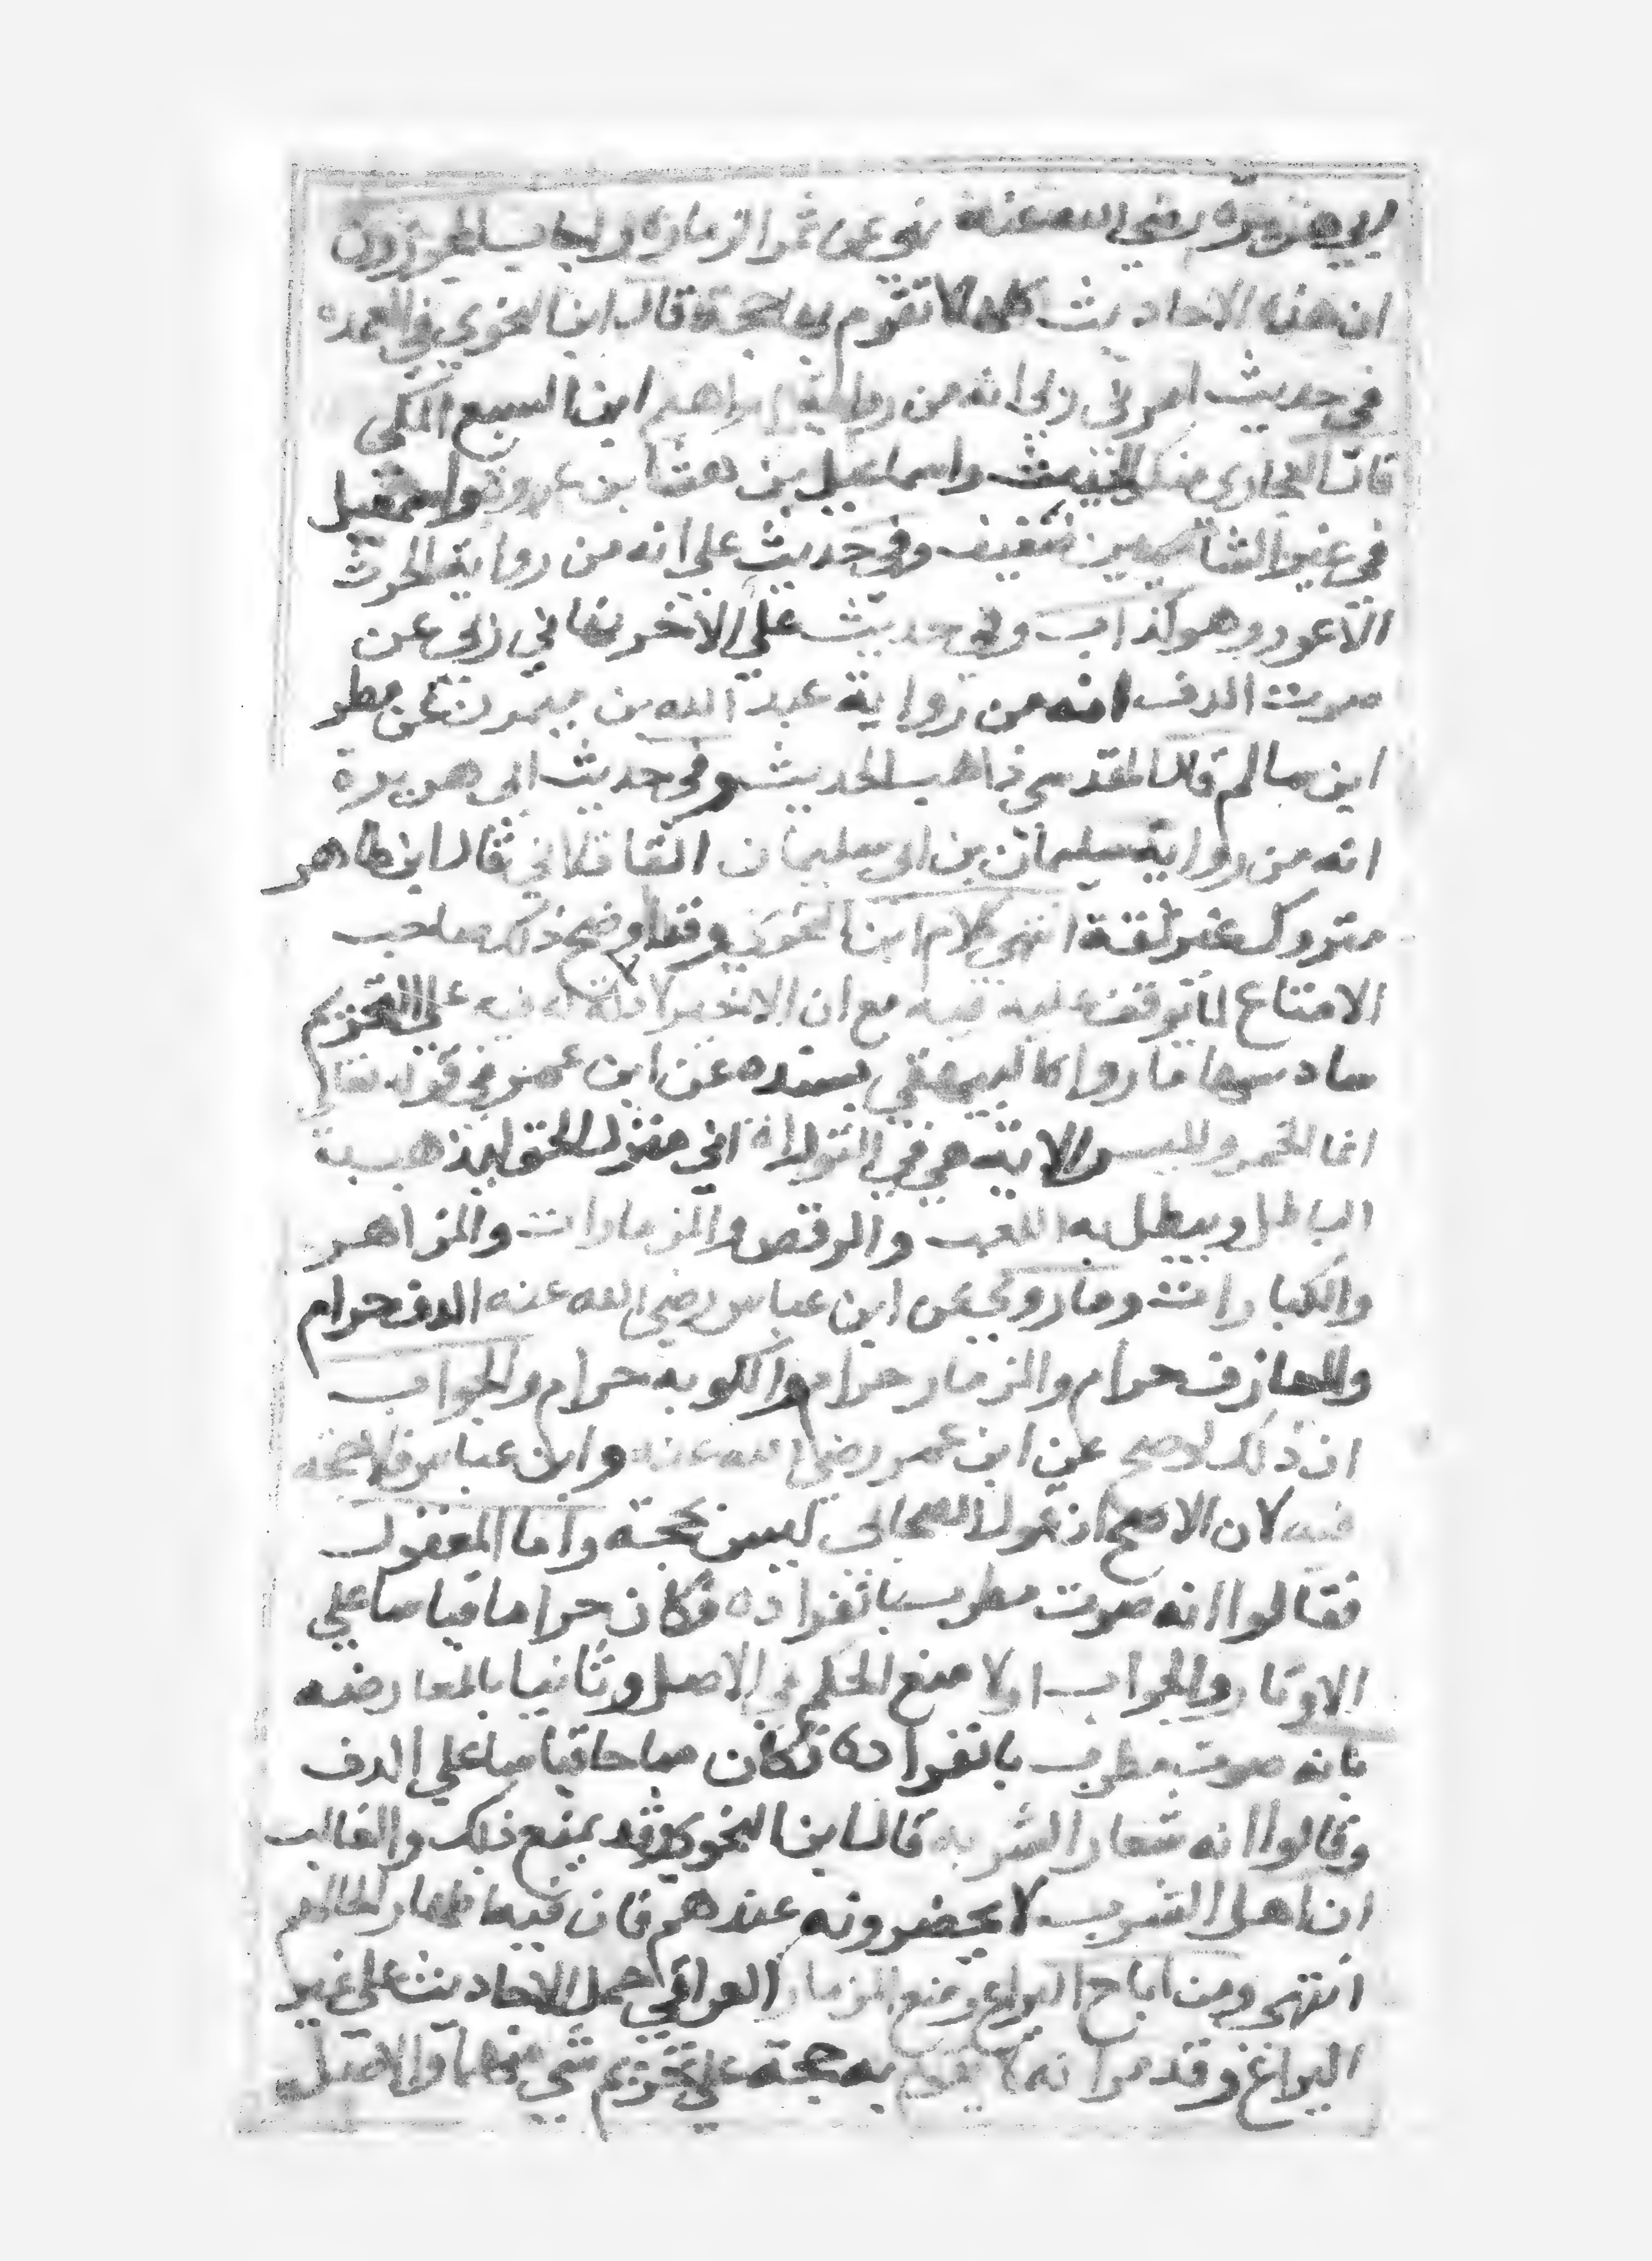 ابي هريره رضي الله عنه نهى عن ثمر الزماره واجاب المجوزون
ان هذه الاحاديث كلها لا تقوم بها حجة قال ابن النحوي في العمده
في حديث امرني ربي انه من رواية ابراهيم ابن اليسع المكي
قال البخاري منكر الحديث واسماعيل بن عياش بن واسمعيل
في غير الشاميين ضعيف وفي حديث علي انه من رواية الحرث
الاعور وهو كذاب وفي حديث علي الاخر نهاني ربي عن
صوت الدف انه من رواية عبد الله بن ميمون عن مطر
ابن سالم قال المقدسي ذاهب الحديث وفي حديث ابي هريرة
انه من رواية سليمان بن ابي سليمان القافلاني قال ابن طاهر
متروك غير ثقة انتهى كلام ابن النحوي وقد اوضح ذلك صاحب
الامتاع لما توقف عليه فيه مع ان الاخير لا دلالة فيه علي التحريم
سادسها ما رواه البيهقي بسنده عن ابن عمر في قوله تعالي
انما الخمر والميسر والاية هي في التوراة اني منزل الحق ليذهب به
الباطل ويبطل به اللعب والرقص والمزمارات والمزاهر
والكبارات وما روي عن ابن عباس رضي الله عنه الدف حرام
والمعازف حرام والمزمار حرام والكوبه حرام والجواب
ان ذلك لا صح عن ابن عمر رضي الله عنه وابن عباس فلا حجه
فيه لان الاصح ان قول الصحابي ليس بحجة واما المعقول
فقالوا انه صوت مطرب بانفراده فكان حراما قياسا علي
الاوتار والجواب اولا منع الحكم في الاصل وثانيا بالمعارضه
بانه صوت مطرب بانفراده فكان مباحا قياسا علي الدف
وقالوا انه شعار الشربه قال ابن النحوي وقد يمنع ذلك والغالب
ان اهل الشرب لا يحضرونه عندهم فان فيه اظهار لحالهم
انتهى ومن اباح اليراع ومنع المزمار العراقي حمل الاحاديث علي غير
اليراع وقد مر انه لا يقوم به حجة علي تحريم شي منها والاصل